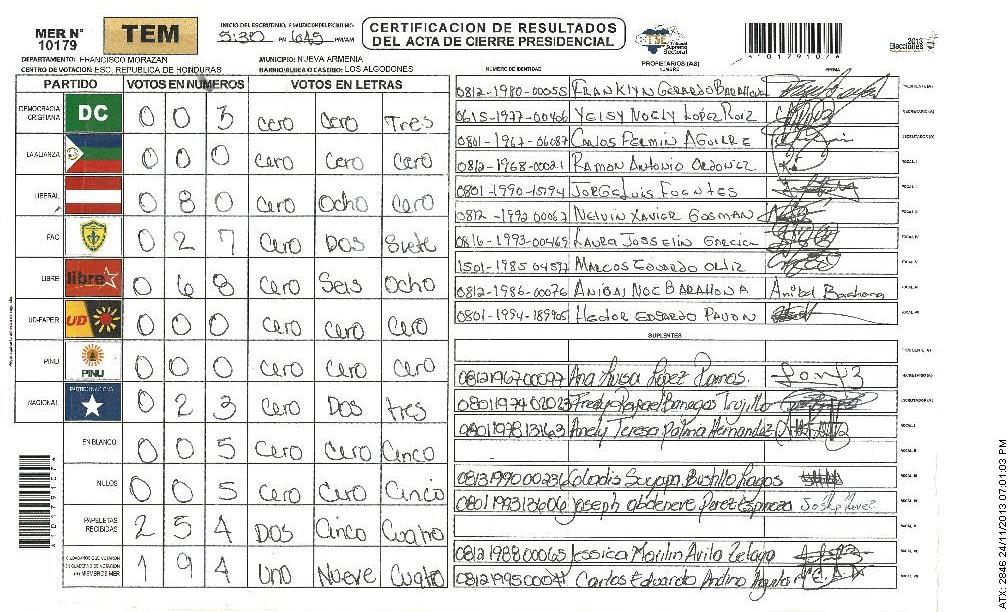 MER N° 10179
TEM
INICIO DEL ESCRUTINIO, FINALIZACION DEL ESCRUTINIO
5:30 PM 6:45 PM/AM
CERTIFICACION DE RESULTADOS
DEL ACTA DE CIERRE PRESIDENCIAL
TSE
Tribunal Supremo Electoral
2013
Elecciones
A10179107A
DEPARTAMENTO: FRANCISCO MORAZAN MUNICIPIO: NUEVA ARMENIA
CENTRO DE VOTACION: ESC. REPUBLICA DE HONDURAS BARRIO/ALDEA O CASERIO: LOS ALGODONES
PARTIDO VOTOS EN NUMEROS VOTOS EN LETRAS
DEMOCRACIA CRISTIANA DC 0 0 3 Cero Cero Tres
LA ALIANZA 0 0 0 Cero Cero Cero
LIBERAL 0 8 0 Cero Ocho Cero
PAC 0 2 7 Cero Dos Siete
LIBRE libre 0 6 8 Cero Seis Ocho
UD-FAPER UD 0 0 0 Cero Cero Cero
PINU PINU 0 0 0 Cero Cero Cero
NACIONAL PARTIDO NACIONAL 0 2 3 Cero Dos tres
EN BLANCO 0 0 5 Cero Cero Cinco
NULOS 0 0 5 Cero Cero Cinco
PAPELETAS RECIBIDAS 2 5 4 Dos Cinco Cuatro
CIUDADANOS QUE VOTARON
EN CUADERNO DE VOTACION
(+) MIEMBROS MER 1 9 4 Uno Nueve Cuatro
NUMERO DE IDENTIDAD PROPIETARIOS (AS) NOMBRE FIRMA
0812-1980-00055 FRANKLYN GERARDO BARAHONA PRESIDENTE(A)
0615-1977-00466 YEISY NOELY LÓPEZ RUIZ SECRETARIO(A)
0801-1967-06087 CARLOS FERMIN AGUIRRE ESCRUTADOR(A)
0812-1968-00021 RAMON ANTONIO ORDOÑEZ VOCAL I
0801-1990-15194 JORGE LUIS FUENTES
0812-1992 00067 NELVIN XAVIER GOSMAN
0816-1993-00469 LAURA JOSSELIN GARCIA VOCAL IV
1501-1985 04577 MARCOS EDUARDO ORTIZ VOCAL V
0812-1986-00076 ANIBAL NOE BARAHONA Anibal Barahona
0801-1994-189905 HECTOR EDGARDO PAVON
SUPLENTES
PRESIDENTE(A)
0812196700097 Ana Luisa López Ramos. SECRETARIO(A)
0801197402023 Fredy Rafael Banegas Trujillo ESCRUTADOR(A)
0801197813163 Anely Teresa Palma Hernandez VOCAL I
0813199000236 Suyapa Bustillo Lagos
0801199313606 Joseph abdeneve Perez Espinoza
0812198800065 Jessica Marilin Avila Zelaya
0812199500041 Carlos Eduardo Andino Aguilar
A10179107A
ATX-2846 24/11/2013 07:01:03 PM